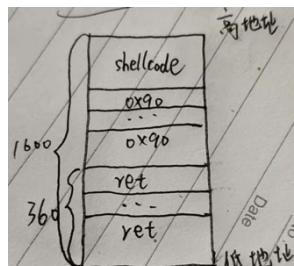 高地址
shellcode
0x90
...
0x90
1600
ret
360
...
ret
Date
低地址